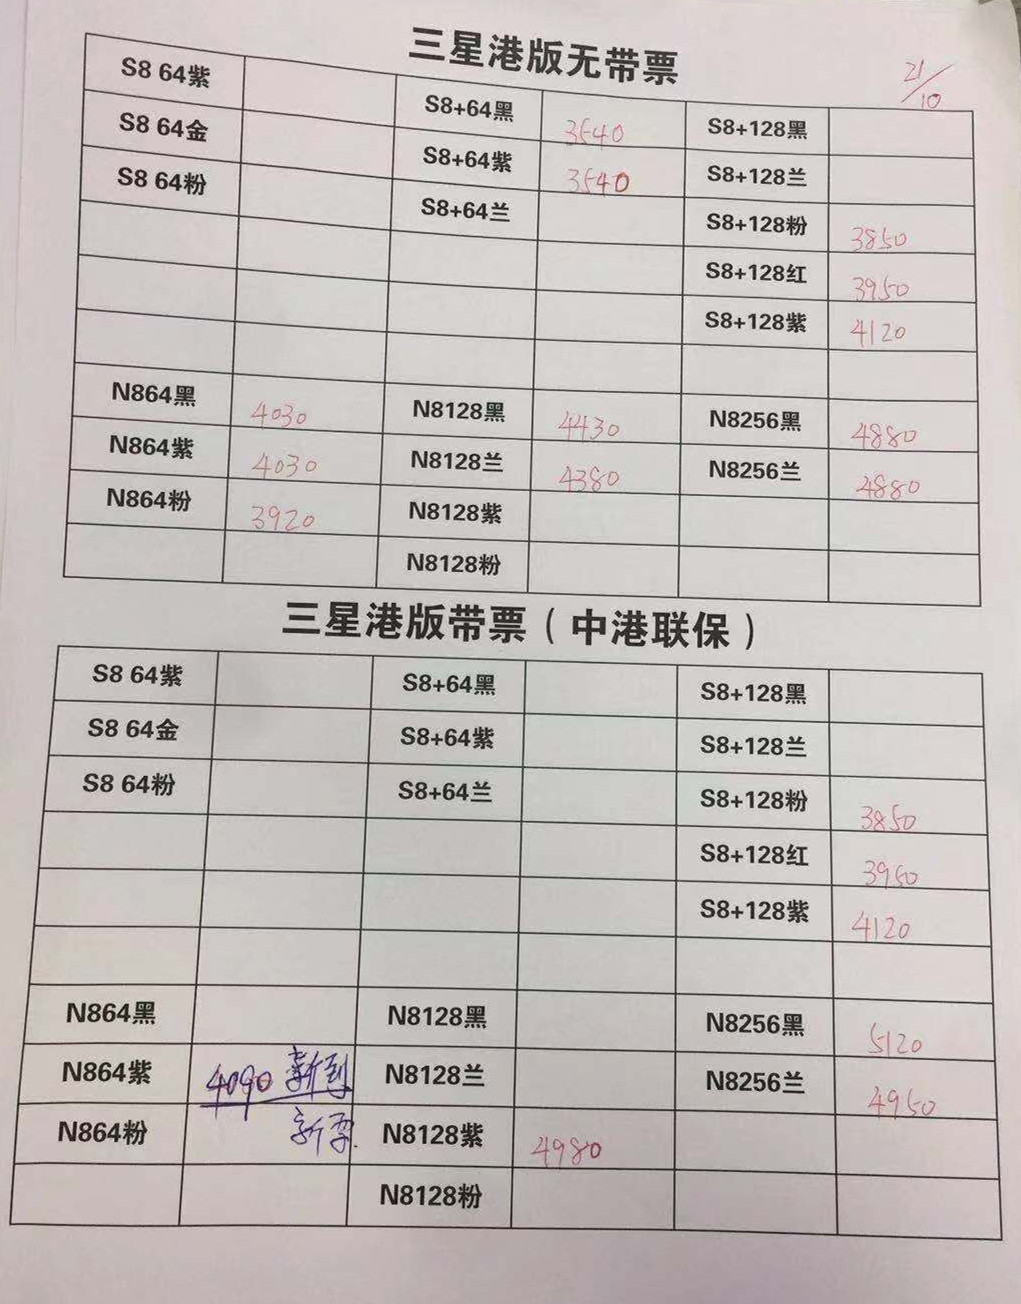 三星港版无带票
21/10
S8 64紫 S8+64黑 3540 S8+128黑
S8 64金 S8+64紫 3540 S8+128兰
S8 64粉 S8+64兰 S8+128粉 3850
S8+128红 3950
S8+128紫 4120
N864黑 4030 N8128黑 4430 N8256黑 4880
N864紫 4030 N8128兰 4380 N8256兰 4880
N864粉 3920 N8128紫
N8128粉
三星港版带票（中港联保）
S8 64紫 S8+64黑 S8+128黑
S8 64金 S8+64紫 S8+128兰
S8 64粉 S8+64兰 S8+128粉 3850
S8+128红 3950
S8+128紫 4120
N864黑 N8128黑 N8256黑 5120
N864紫 4090 新到 N8128兰 N8256兰 4950
N864粉 N8128紫 4980
N8128粉